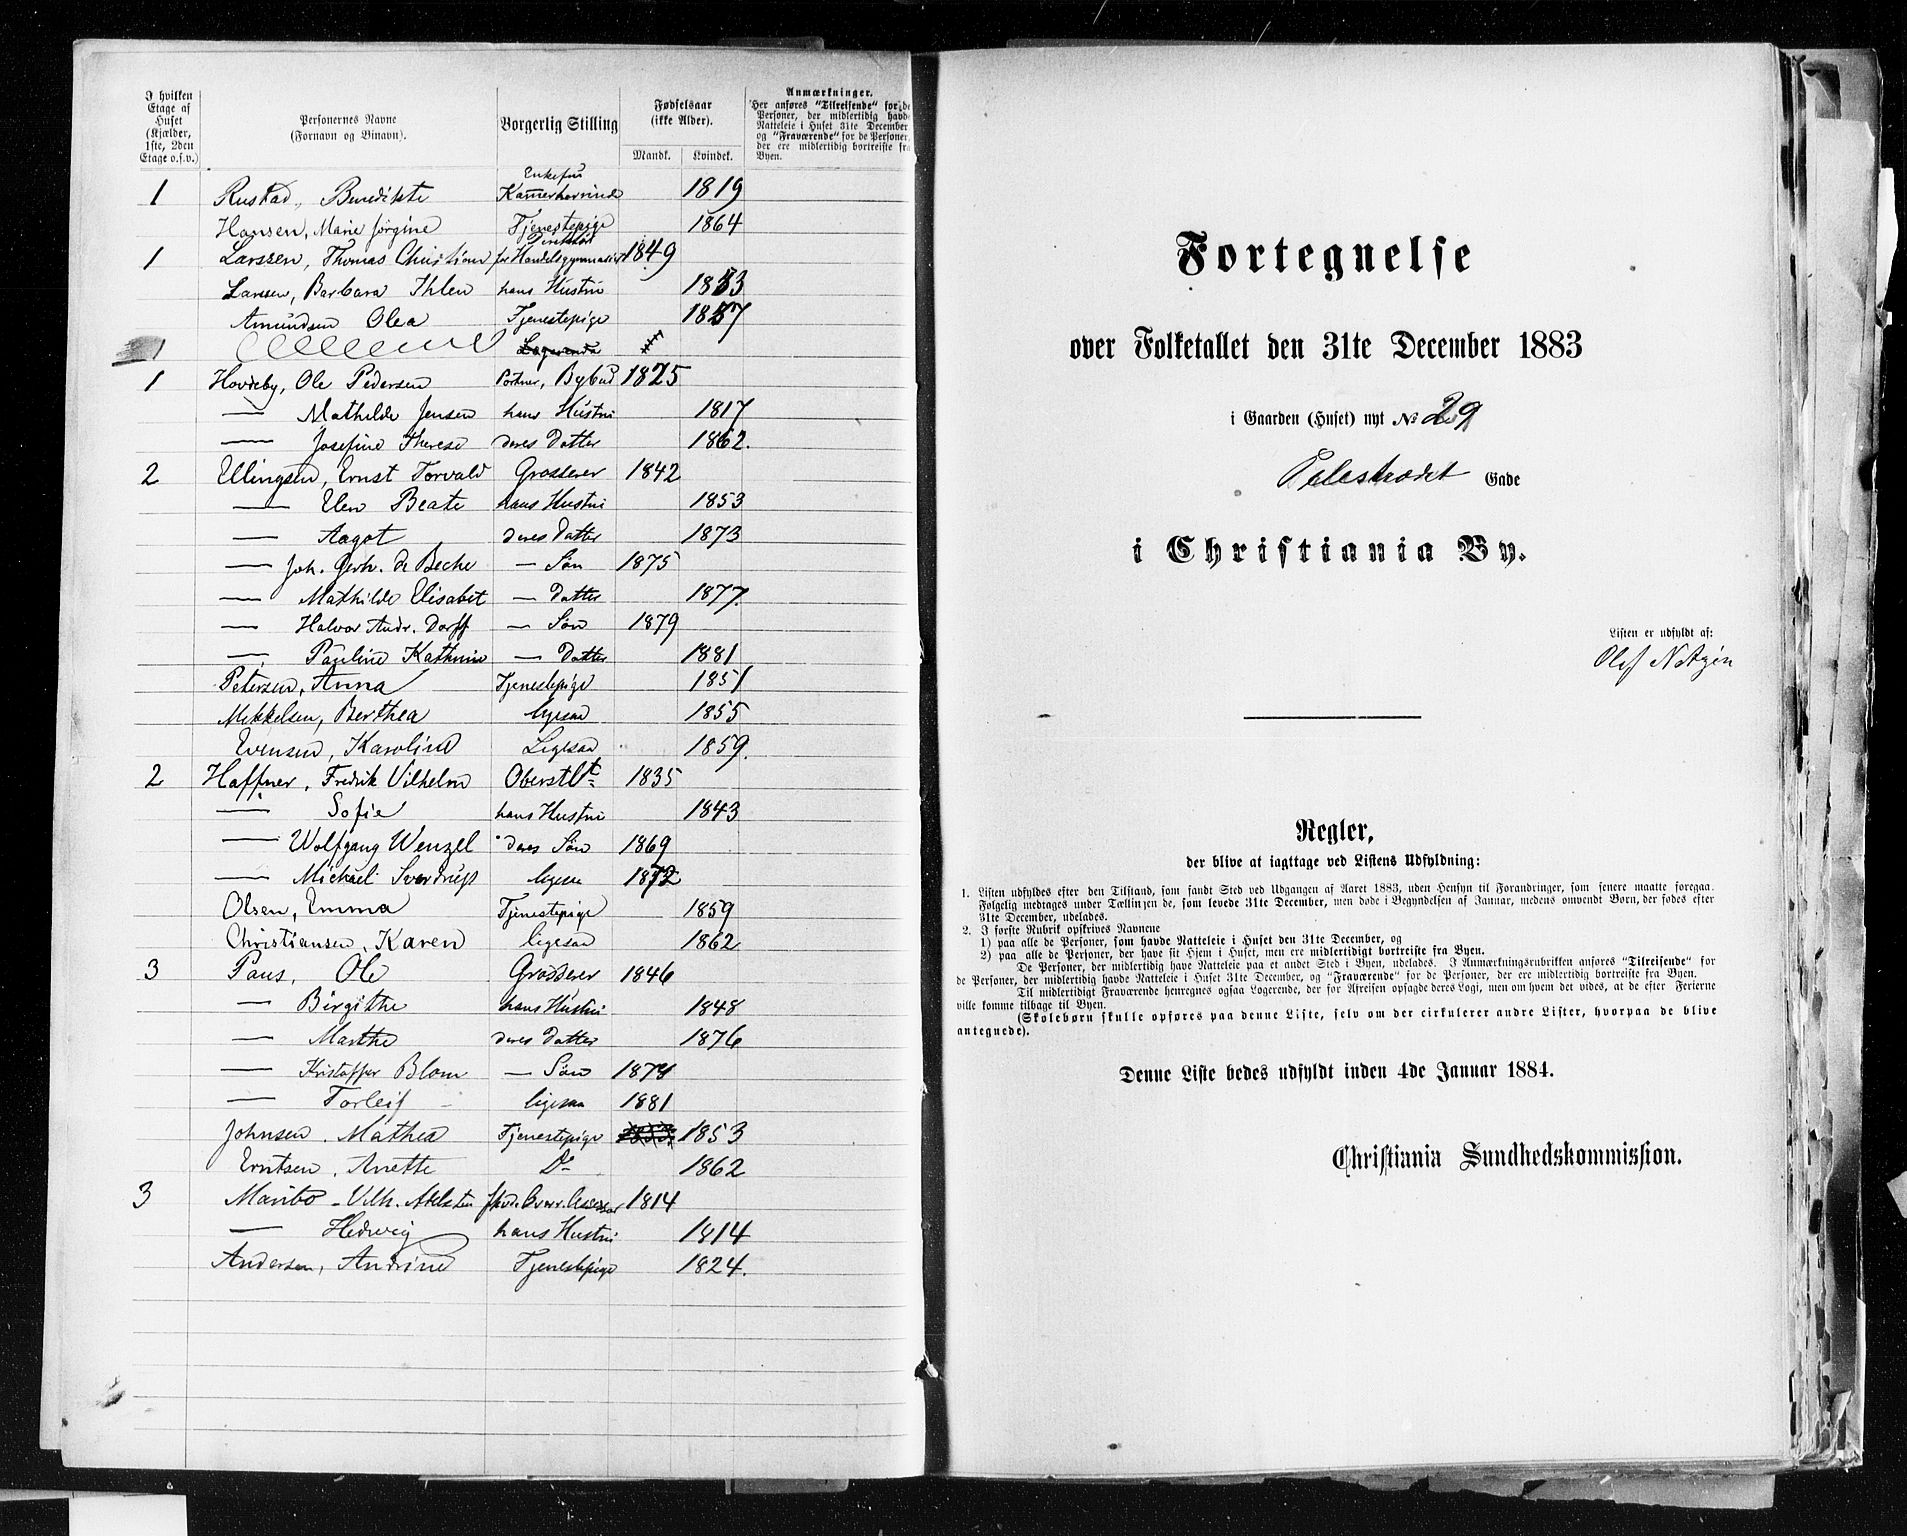 I hvilken Etage af Huset (Kjælder, 1ste, 2den Etage o.s.v.)
Personernes Navne (Fornavn og Binavn).
Borgerlig Stilling
Fødselsaar (ikke Alder).
Mandk. Kvindek.
Anmærkninger.
Her anføres "Tilreisende" for de Personer, der midlertidig havde Natteleie i Huset 31te December og "Fraværende" for de Personer, der ere midlertidig bortreiste fra Byen.
1 Rustad, Benedikte Enkefru Kammerherrinde 1819
Hansen, Marie Jørgine Tjenestepige 1864
1 Larssen, Thomas Christian Direktør for Handelsgymnasiet 1849
Larssen, Barbara Ihlen hans Hustru 1853
Amundsen Olea Tjenestepige 1857
1 Logerende
1 Hovdeby, Ole Pedersen Portner, Bybud 1825
— Mathilde Jensen hans Hustru 1817
— Josefine Therese deres Datter 1862.
2 Ellingsen, Ernst Torvald Grosserer 1842
— Elen Beate hans Hustru 1853
— Aagot deres Datter 1873
— Joh. Gerh. d Beche — Søn 1875
— Mathilde Elisabet — Datter 1877.
— Halvor Andr. Dorff — Søn 1879
— Pauline Kathrine — Datter 1881
Petersen, Anna Tjenestepige 1851
Mikkelsen, Berthea ligesaa 1855
Evensen, Karoline Ligesaa 1859.
2 Haffner, Fredrik Vilhelm Oberstlt. 1835
— Sofie hans Hustru 1843
— Wolfgang Wenzel deres Søn 1869
— Michael Sverdrup ligesaa 1872
Olsen, Emma Tjenestepige 1859
Christiansen, Karen ligesaa 1862
3 Paus, Ole Grosserer 1846
— Birgithe hans Hustru 1848
— Marthe deres Datter 1876
— Kristoffer Blom — Søn
— Torleif ligesaa 1881
Johnsen, Mathea Tjenestepige 1853
Erntsen, Anette Do 1862
3 Maribo - Vilh. 1814
— Hedvig hans Hustru 1814
Andersen, Andrine Tjenestepige 1824.
Fortegnelse
over Folketallet den 31te December 1883
i Gaarden (Huset) nyt No 29
Pilestrædet Gade
i Christiania By.
Listen er udfyldt af:
Olef
Regler,
der blive at iagttage ved Listens Udfyldning:
1. Listen udfyldes efter den Tilstand, som fandt Sted ved Udgangen af Aaret 1883, uden Hensyn til Forandringer, som senere maatte foregaa.
Følgelig medtages under Tællingen de, som levede 31te December, men døde i Begyndelsen af Januar, medens omvendt Børn, der fødes efter
31te December, udelades.
2. I første Rubrik opskrives Navnene
1) paa alle de Personer, som havde Natteleie i Huset den 31te December, og
2) paa alle de Personer, der have sit Hjem i Huset, men ere midlertidigt bortreiste fra Byen.
De Personer, der midlertidig have Natteleie paa et andet Sted i Byen, udelades. I Anmærkningsrubriken anføres "Tilreisende" for
de Personer, der midlertidig havde Natteleie i Huset 31te December, og "Fraværende" for de Personer, der ere midlertidig bortreiste fra Byen.
Til midlertidigt Fraværende henregnes ogsaa Logerende, der før Afreisen opsagde deres Logi, men om hvem det vides, at de efter Ferierne
ville komme tilbage til Byen.
(Skolebørn skulle opføres paa denne Liste, selv om der cirkulerer andre Lister, hvorpaa de blive
antegnede).
Denne Liste bedes udfyldt inden 4de Januar 1884.
Christiania Sundhedskommission.